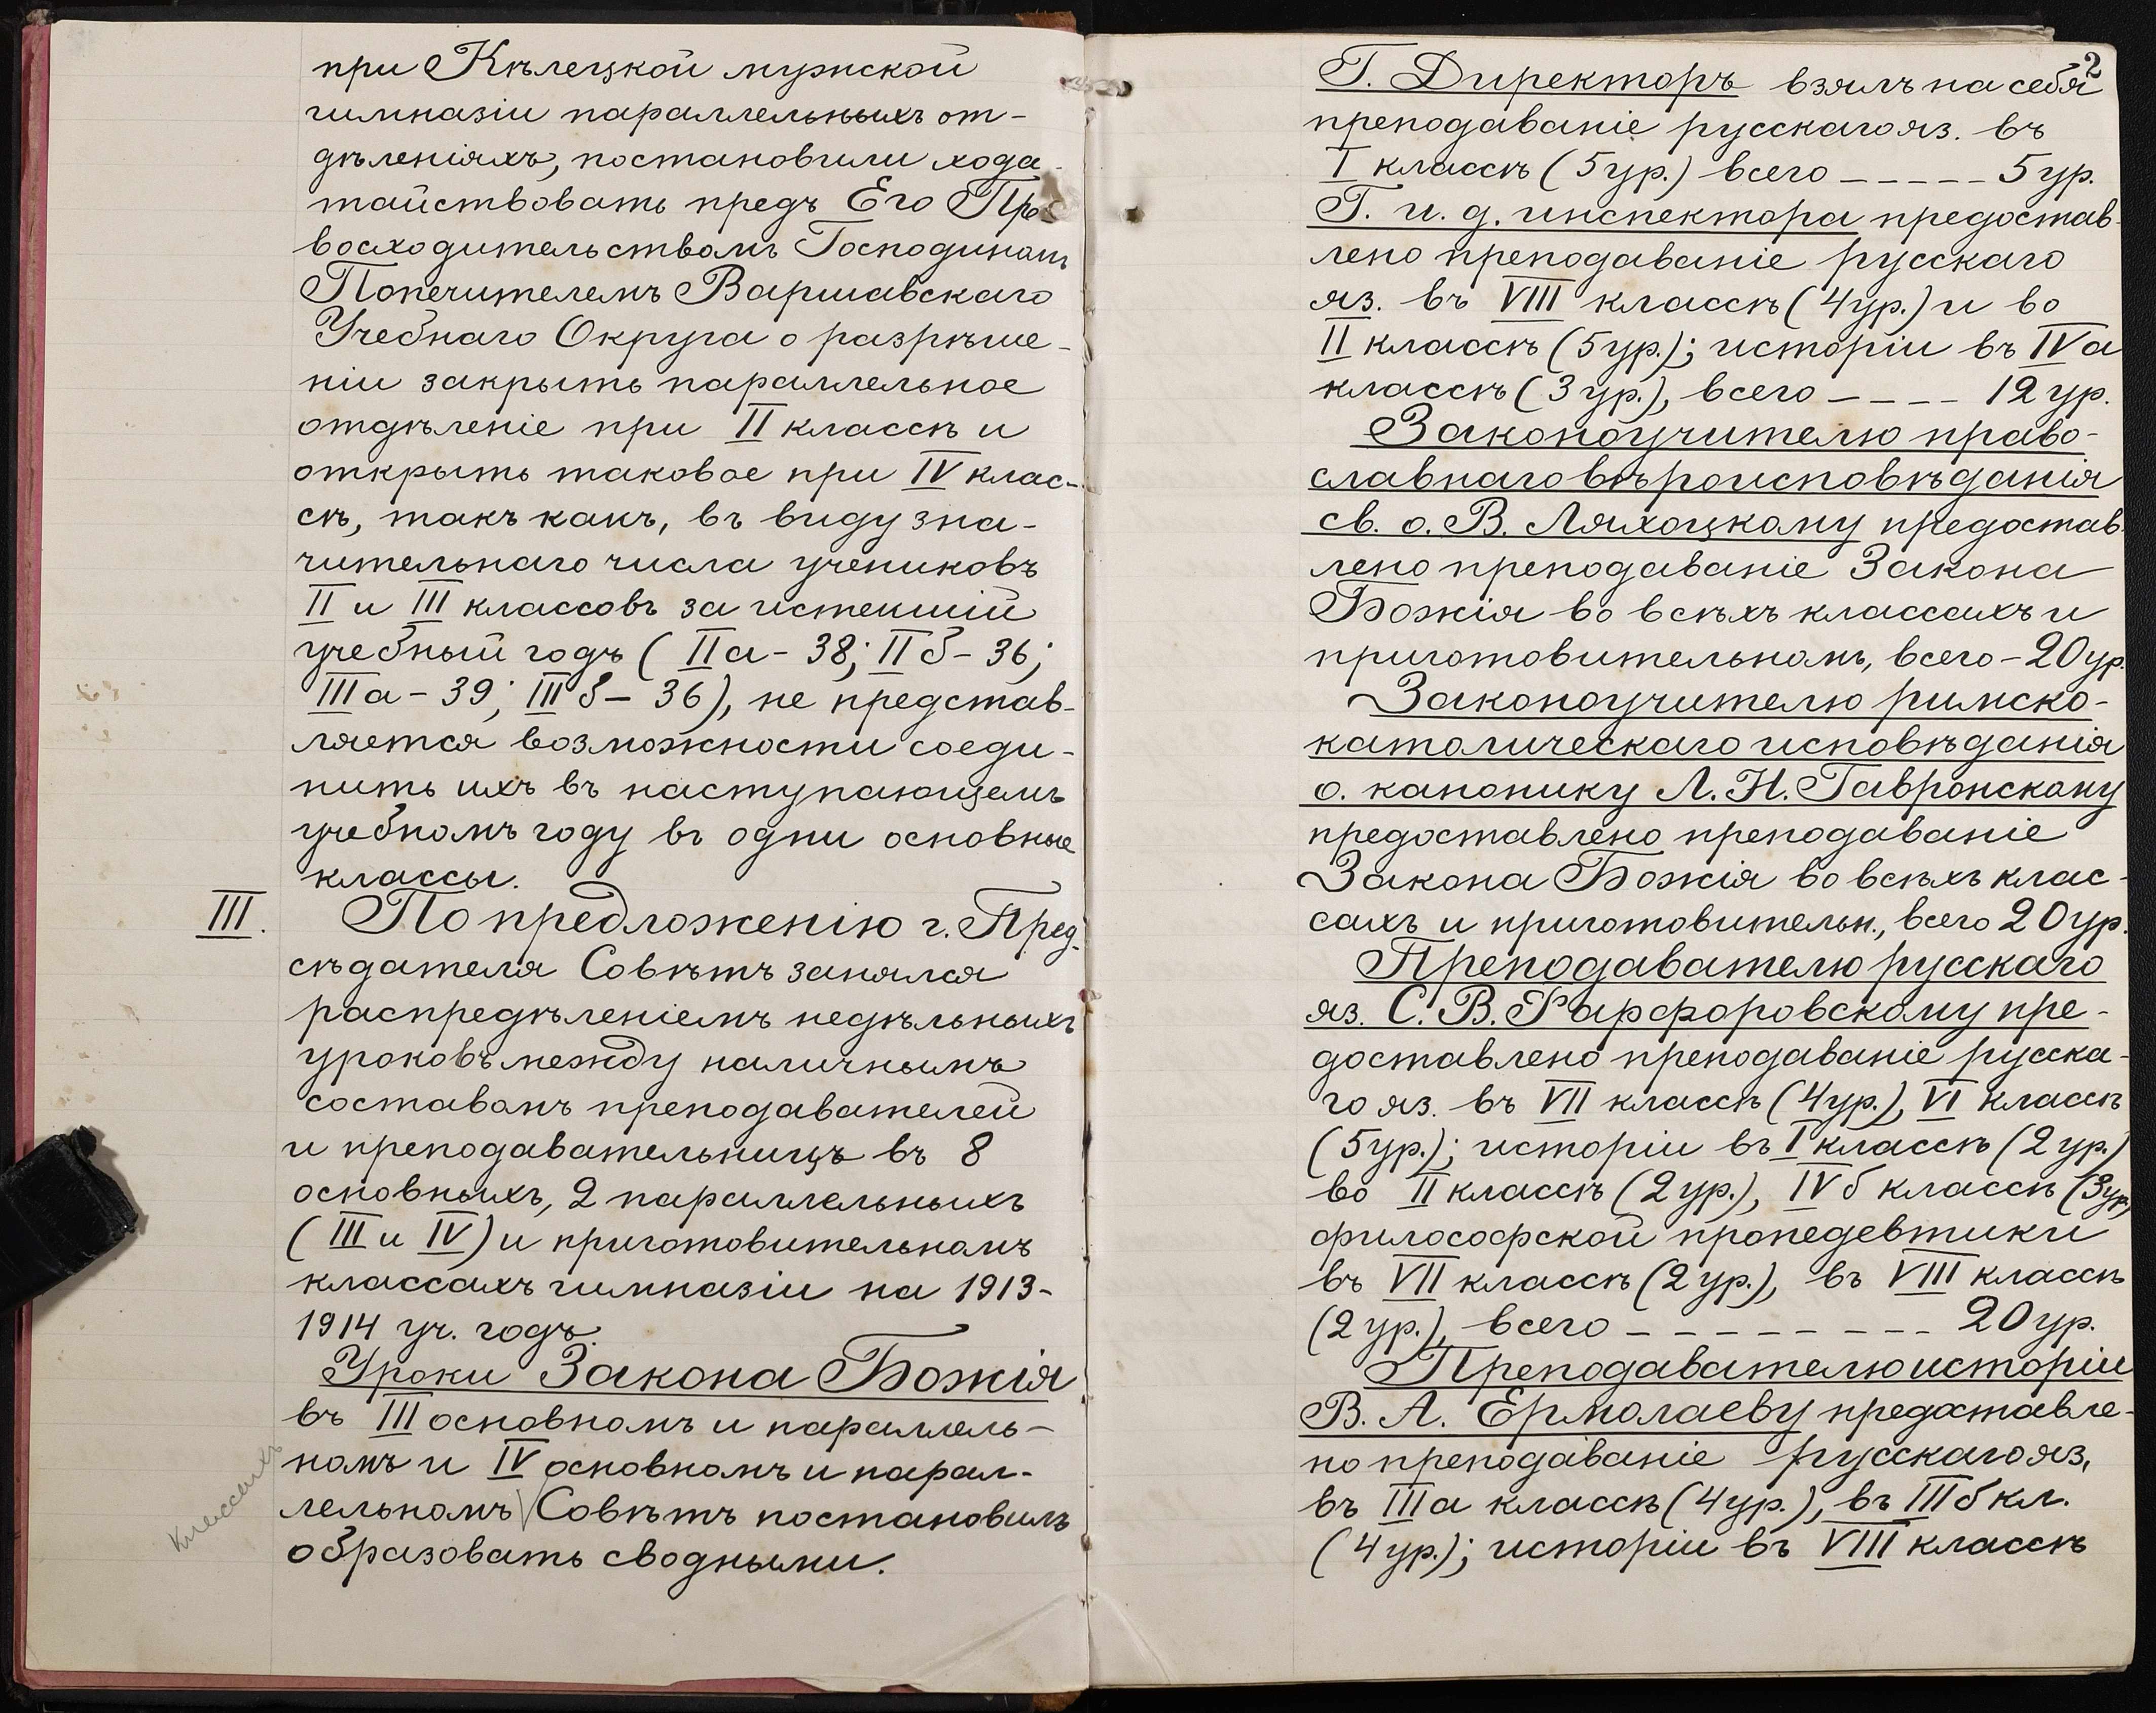 при Кѣлецкой мужской
гимназіи параллельныхъ от-
дѣленіяхъ, постановили хода-
тайствовать предъ Его Пре
восходительствомъ Господиномъ
Попечителемъ Варшавскаго
Учебнаго Округа о разрѣше-
ніи закрыть параллельное
отдѣленіе при II классѣ и
открыть таковое при IV клас-
сѣ, такъ какъ, въ виду зна-
чительнаго числа учениковъ
II и III классовъ за истекшій
учебный годъ (IIа - 38; IIб - 36;
IIIа - 39; IIIб - 36), не представ-
ляется возможности соеди-
нить ихъ въ наступающемъ
учебномъ году въ одни основные
классы.
III. По предложенію г. Пред-
сѣдателя Совѣтъ занялся
распредѣленіемъ недѣльныхъ
уроковъ между наличнымъ
составомъ преподавателей
и преподавательницъ въ 8
основныхъ, 2 параллельныхъ
(III и IV) и приготовительномъ
классахъ гимназіи на 1913-
1914 уч. годъ.
Уроки Закона Божія
въ III основномъ и параллель-
номъ и IV основномъ и парал-
лельномъ Совѣтъ постановилъ
классахъ
образовать сводными.
2
Г. Директоръ взялъ на себя
преподаваніе русскаго яз. въ
I классѣ (5 ур.) всего ----- 5 ур.
Г. и. д. инспектора предостав-
лено преподаваніе русскаго
яз. въ VIII классѣ (4 ур.) и во
II классѣ (5 ур.); исторіи въ IVа
классѣ (3 ур.), всего ---- 12 ур.
Законоучителю право-
славнаго вѣроисповѣданія
св. о. В. Ляхоцкому предостав-
лено преподаваніе Закона
Божія во всѣхъ классахъ и
приготовительномъ, всего - 20 ур.
Законоучителю римско-
католическаго исповѣданія
о. канонику Л. Н. Гавронскому
предоставлено преподаваніе
Закона Божія во всѣхъ клас-
сахъ и приготовительн., всего 20 ур.
Преподавателю русскаго
яз. С. В. Фарфоровскому пре-
доставлено преподаваніе русска-
го яз. въ VII классѣ (4 ур.), VI классѣ
(5 ур.); исторіи въ I классѣ (2 ур.)
во II классѣ (2 ур.), IVб классѣ (3 ур.)
философской пропедевтики
въ VII классѣ (2 ур.), въ VIII классѣ
(2 ур.), всего --------- 20 ур.
Преподавателю исторіи
В. А. Ермолаеву предоставле-
но преподаваніе русскаго яз.
въ IIIа классѣ (4 ур.), въ IIIб кл.
(4 ур.); исторіи въ VIII классѣ